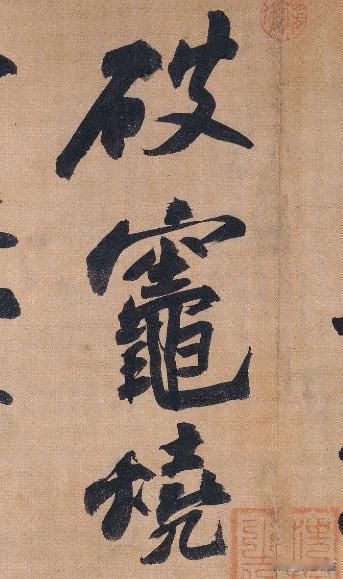 破竈燒